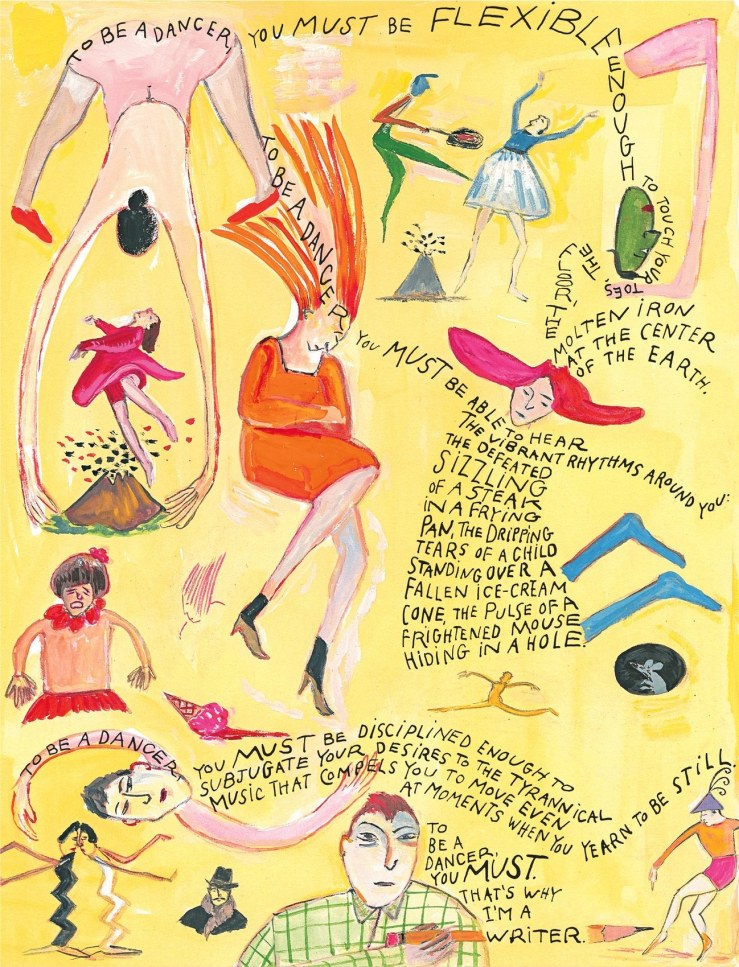 TO BE A DANCER, YOU MUST BE FLEXIBLE
ENOUGH
TO TOUCH YOUR
TOES,
THE
FLOOR, THE
MOLTEN IRON
AT THE CENTER
OF THE EARTH.
TO BE A DANCER,
YOU MUST BE ABLE TO HEAR
THE VIBRANT RHYTHMS AROUND YOU:
THE DEFEATED
SIZZLING
OF A STEAK
IN A FRYING
PAN, THE DRIPPING
TEARS OF A CHILD
STANDING OVER A
FALLEN ICE-CREAM
CONE, THE PULSE OF A
FRIGHTENED MOUSE
HIDING IN A HOLE.
TO BE A DANCER,
YOU MUST BE DISCIPLINED ENOUGH TO
SUBJUGATE YOUR DESIRES TO THE TYRANNICAL
MUSIC THAT COMPELS YOU TO MOVE EVEN
AT MOMENTS WHEN YOU YEARN TO BE STILL.
TO
BE A
DANCER,
YOU MUST.
THAT'S WHY
I'M A
WRITER.